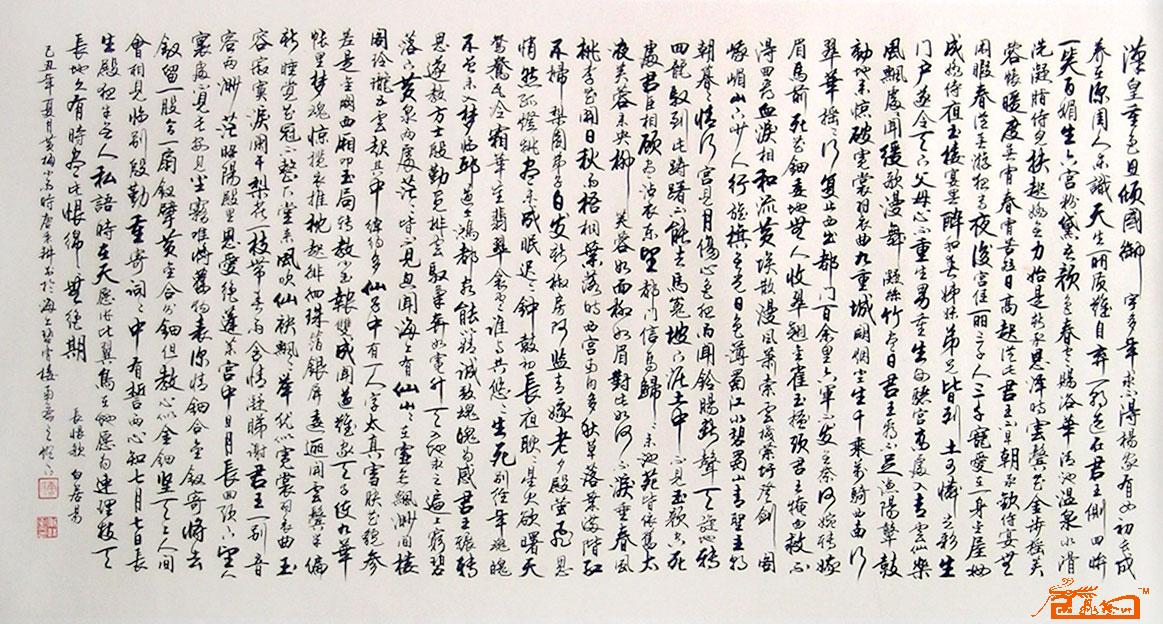 漢皇重色思傾國御宇多年求不得楊家有女初長成
养在深閨人未識天生麗質難自弃一朝選在君王側回眸
一笑百媚生六宫粉黛無顔色春寒賜浴華清池温泉水滑
洗凝脂侍兒扶起嬌無力始是新承恩澤時雲鬢花顔金步摇芙
蓉帳暖度春宵春宵苦短日高起從此君王不早朝承歡侍宴無
閑暇春從春遊夜專夜後宫佳麗三千人三千寵愛在一身金屋妝
成嬌侍夜玉樓宴罷醉和春姊妹弟兄皆列土可憐光彩生
門户遂令天下父母心不重生男重生女驪宫高處入青雲仙樂
風飄處處聞緩歌漫舞凝絲竹盡日君王看不足漁陽鼙鼓
動地来驚破霓裳羽衣曲九重城闕烟塵生千乘萬騎西南行
翠華摇摇行復止西出都門百余里六軍不發無奈何宛轉蛾
眉馬前死花鈿委地無人收翠翹金雀玉搔頭君王掩面救不
得回看血淚相和流黄埃散漫風萧索雲棧縈紆登劍閣
峨嵋山下少人行旌旗無光日色薄蜀江水碧蜀山青聖主朝
朝暮暮情行宫見月傷心色夜雨聞鈴腸斷聲天旋地轉
回龍馭到此躊躇不能去馬嵬坡下泥土中不見玉顔空死
處君臣相顧盡沾衣東望都門信馬歸歸来池苑皆依舊太
液芙蓉未央柳芙蓉如面柳如眉對此如何不淚垂春風
桃李花開日秋雨梧桐葉落時西宫南内多秋草落葉滿階紅
不掃梨園弟子白发新椒房阿監青娥老夕殿螢飛思
悄然孤燈挑盡未成眠遲遲鐘鼓初長夜耿耿星河欲曙天
鴛鴦瓦冷霜華重翡翠衾寒誰與共悠悠生死别經年魂魄
不曾来入夢臨邛道士鴻都客能以精誠致魂魄为感君王輾轉
思遂教方士殷勤覓排空馭氣奔如電升天入地求之遍上窮碧
落下黄泉兩處茫茫皆不見忽聞海上有仙山山在虚無縹緲間樓
閣玲瓏五雲起其中綽約多仙子中有一人字太真雪膚花貌參
差是金闕西厢叩玉扃轉教小玉報雙成聞道漢家天子使九華
帳里夢魂惊攬衣推枕起徘徊珠箔銀屏迤邐開雲鬢半偏
新睡覺花冠不整下堂来風吹仙袂飄飄舉犹似霓裳羽衣曲玉
容寂寞淚闌干梨花一枝帶春雨含情凝睇謝君王一别音
容两渺茫昭陽殿里恩愛絶蓬萊宫中日月長回頭下望人
寰處不見長安見塵霧唯將舊物表深情鈿合金釵寄將去
釵留一股合一扇釵擘黄金合分鈿但教心似金鈿堅天上人間
會相見臨别殷勤重寄詞詞中有誓兩心知七月七日長
生殿夜半無人私語時在天愿作比翼鳥在地愿為連理枝天
長地久有時盡此恨綿綿無絶期 長恨歌 白居易
己丑年夏月黄梅小雨時於海上碧雲樓南窗之燈下